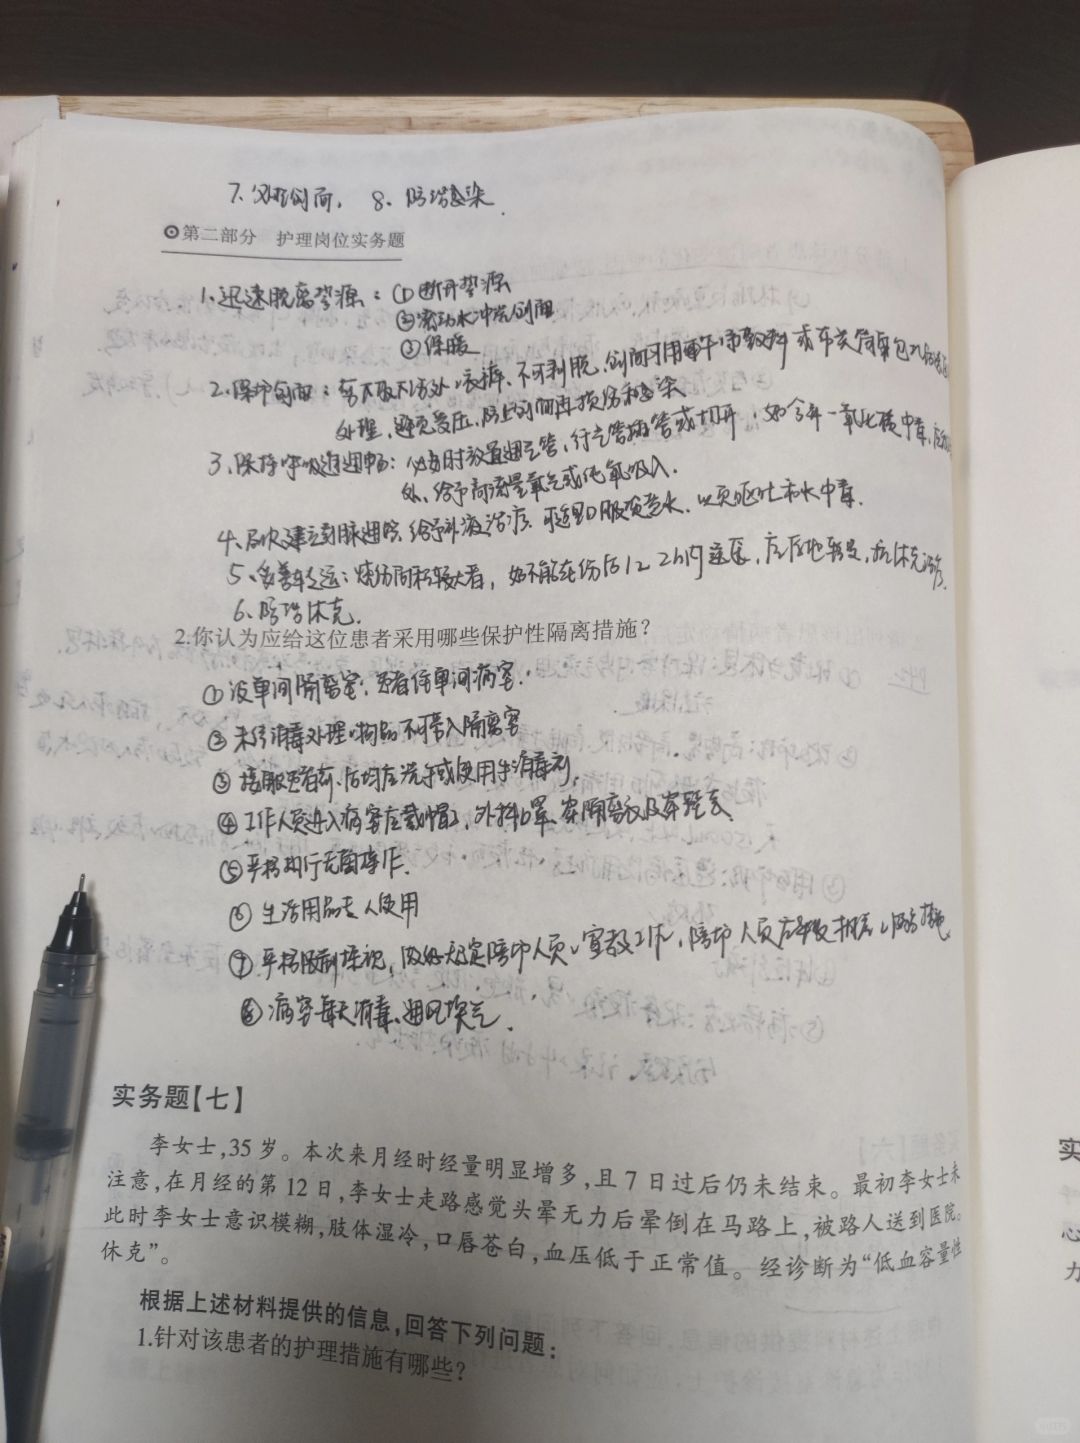 7、处理创面, 8、防治感染.
第二部分 护理岗位实务题
1、迅速脱离热源：①断开热源
②流动水冲洗创面
③保暖
2、保护创面：剪下取下伤处衣裤、不可剥脱，创面可用干净敷料或布类简单包扎后送医
处理，避免受压，防止创面再损伤和感染
3、保持呼吸道通畅：必要时放置通气管，行气管插管或切开，如合并一氧化碳中毒，应
外，给予高流量氧气或纯氧吸入.
4、尽快建立静脉通路，给予补液治疗，可适量口服淡盐水，以免呕吐和水中毒.
5、妥善转运：烧伤面积较大者，如不能在伤后1～2h内送医，应在原地 抗休克治疗.
6、防治休克.
2.你认为应给这位患者采用哪些保护性隔离措施？
①设单间隔离室，患者住单间病室.
②未经消毒处理的物品不可带入隔离室
③接触患者前、后均应洗手或使用手消毒剂，
④工作人员进入病室应戴帽子、外科口罩、穿隔离衣及穿鞋套
⑤严格执行无菌操作.
⑥生活用品专人使用
⑦严格限制探视，做好固定陪护人员的宣教工作，陪护人员应采取相应的防护措施
⑧病室每天消毒、通风换气.
实务题【七】
李女士,35岁。本次来月经时经量明显增多,且7日过后仍未结束。最初李女士未
注意,在月经的第12日,李女士走路感觉头晕无力后晕倒在马路上,被路人送到医院。
此时李女士意识模糊,肢体湿冷,口唇苍白,血压低于正常值。经诊断为“低血容量性
休克”。
根据上述材料提供的信息,回答下列问题：
1.针对该患者的护理措施有哪些？
实
心
力